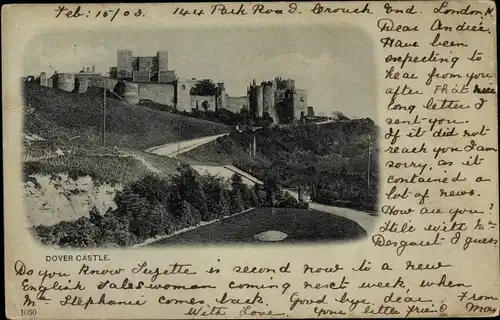 Feb: 15/03. 144 Park Road, Crouch End, London N
Dear Andrée.
Have been
expecting to
hear from you
after that
long letter I
sent you.
If it did not
reach you I am
sorry, as it
contained a
lot of news.
How are you?
Still with Mr
I guess
DOVER CASTLE.
Do you know Suzette is second now to a new
English Saleswoman coming next week, when
Mme Stephanie comes back. Good bye dear. From
With Love. You little friend
1030